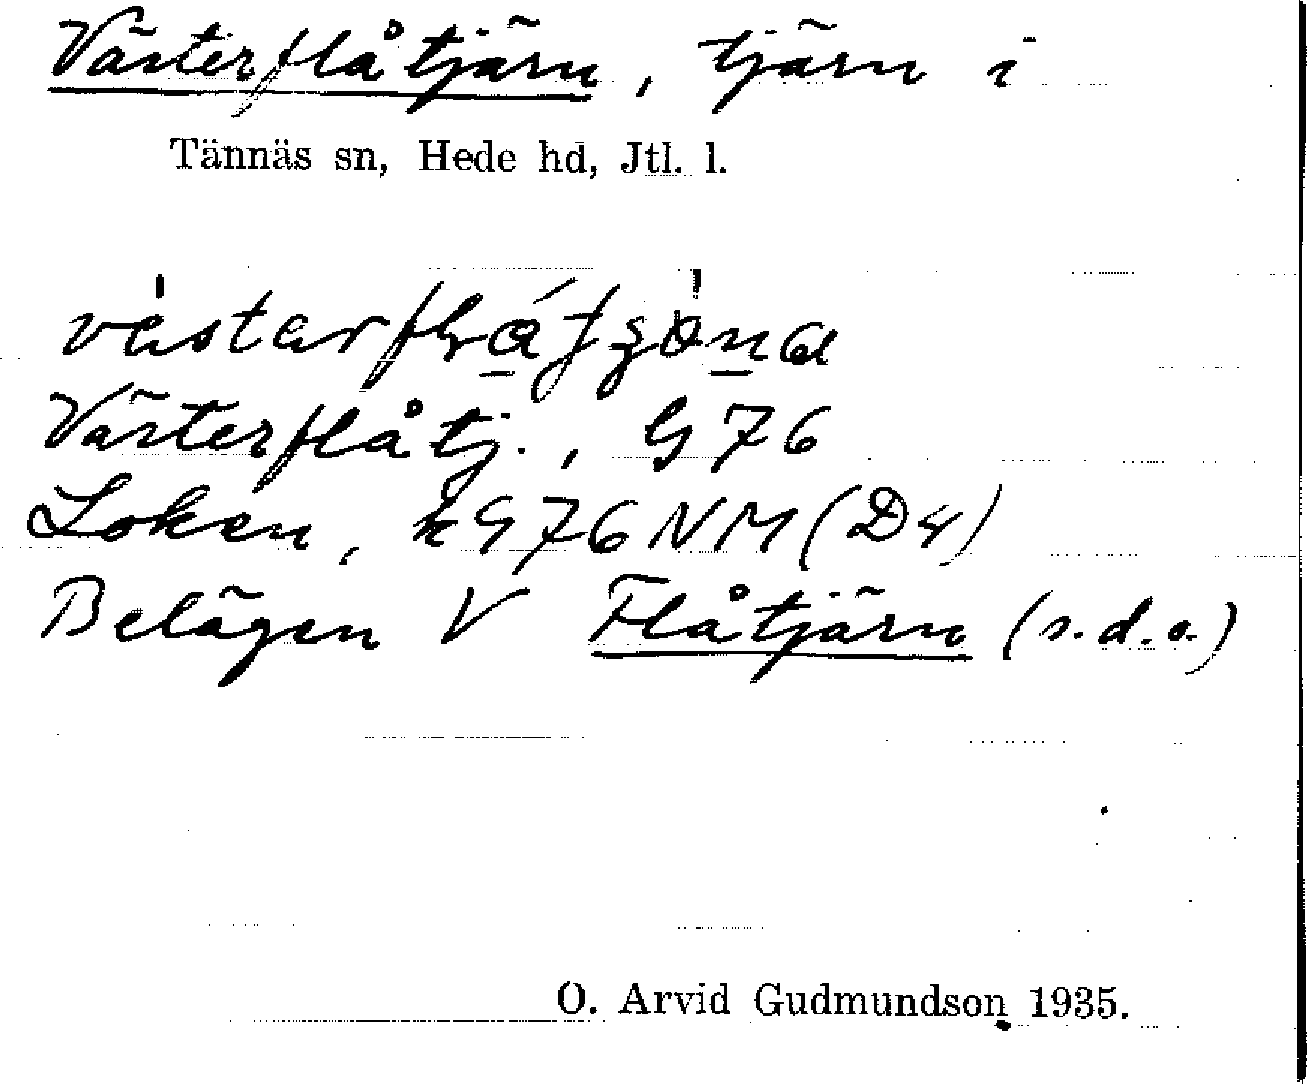 Västerflåtjärn, tjärn i
Tännäs sn, Hede hd, Jtl. l.
Västerflåtj., G 76
Loken, kG76NM (D4)
Belägen V Flåtjärn (s.d.o.)
O. Arvid Gudmundson 1935.